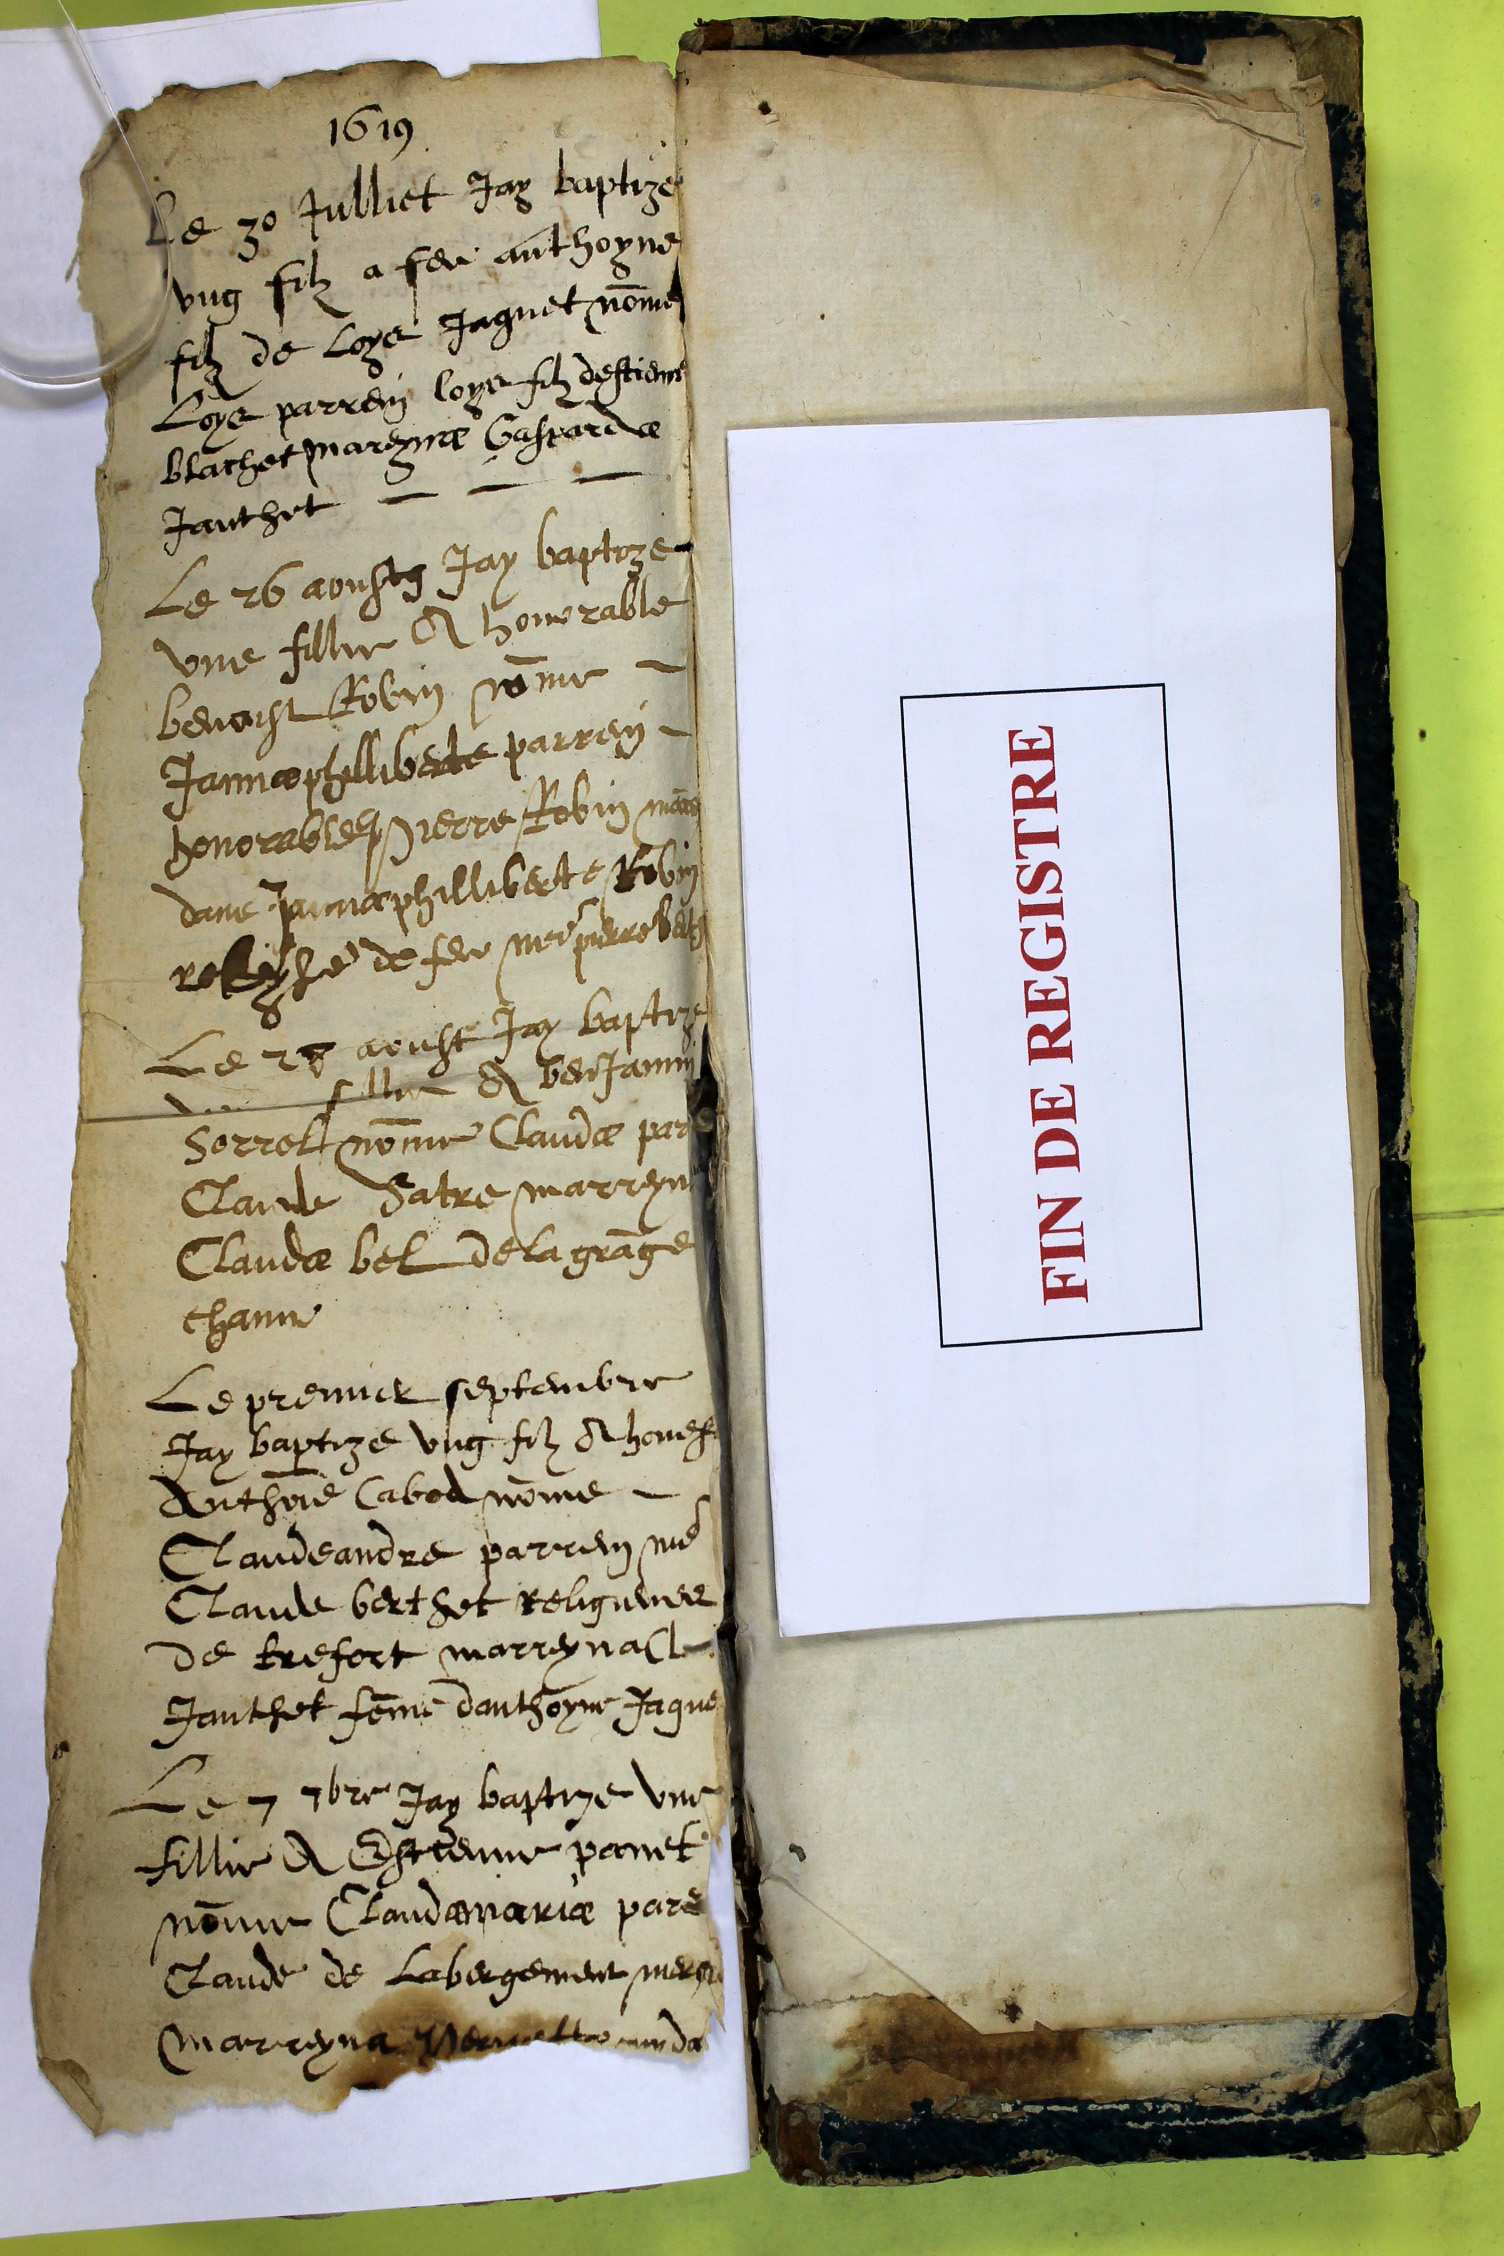 1619
Le 30 Julliet Jay baptize
ung filz a feu anthoyne
filz de Loye Jaquet nōme
Loye parrein loye filz destiene
blachet mareynæ Gaspardæ
Janthet
Le 26 aoust Jay baptize
une fillie A honorable
benoist Robin nōme
Jannæphilliberte parrein
honorable pierre Robin
dame Jannæphilliberte Robin
de feu
Le aoust Jay baptize
fillie A benJamin
Sorret nōme Claudæ par
Claude Satre marreyn
Claudæ bel de la grāge
Le premier septembre
Jay baptize ung filz A hones
Anthoīe Cabod nōme
Claudeandre parrein me
Claude berthet religieuer
de trefort marreyna Cl
Janthet fēme danthoyne Jaque
Le 7 7bre Jay baptize une
fillie A Estienne panet
nōme Claudæmariæ pare
Claude de Labergement
marreyna
FIN DE REGISTRE